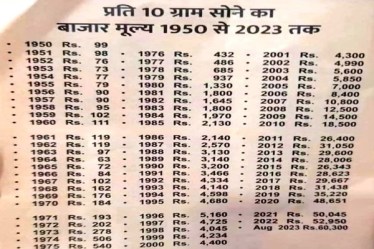 प्रति 10 ग्राम सोने का
बाजार मूल्य 1950 से 2023 तक
• 1950 Rs. 99
• 1951 Rs. 98
• 1952 Rs. 76
• 1953 Rs. 73
• 1954 Rs. 77
• 1955 Rs. 79
• 1956 Rs. 90
• 1957 Rs. 90
• 1958 Rs. 95
• 1959 Rs. 102
• 1960 Rs. 111
• 1961 Rs. 119
• 1962 Rs. 119
• 1963 Rs. 97
• 1964 Rs. 63
• 1965 Rs. 72
• 1966 Rs. 84
• 1967 Rs. 102
• 1968 Rs. 162
• 1969 Rs. 176
• 1970 Rs. 184
• 1971 Rs. 193
• 1972 Rs. 202
• 1973 Rs.
• 1974 Rs.
• 1975 Rs. 540
• 1976 Rs. 432
• 1977 Rs. 486
• 1978 Rs. 685
• 1979 Rs. 937
• 1980 Rs. 1,330
• 1981 Rs. 1,800
• 1982 Rs. 1,645
• 1983 Rs. 1,800
• 1984 Rs. 1,970
• 1985 Rs. 2,130
• 1986 Rs. 2,140
• 1987 Rs. 2,570
• 1988 Rs. 3,130
• 1989 Rs. 3,140
• 1990 Rs. 3,200
• 1991 Rs. 3,466
• 1992 Rs. 4,334
• 1993 Rs. 4,140
• 1994 Rs. 4,598
• 1995 Rs. 4,680
• 1996 Rs. 5,160
• 1997 Rs. 4,725
• 1998 Rs. 4,045
• 1999 Rs. 4,234
• 2000 Rs. 4,400
• 2001 Rs. 4,300
• 2002 Rs. 4,990
• 2003 Rs. 5,600
• 2004 Rs. 5,850
• 2005 Rs. 7,000
• 2006 Rs. 8,400
• 2007 Rs. 10,800
• 2008 Rs. 12,500
• 2009 Rs. 14,500
• 2010 Rs. 18,500
• 2011 Rs. 26,400
• 2012 Rs. 31,050
• 2013 Rs. 29,600
• 2014 Rs. 28,006
• 2015 Rs. 26,343
• 2016 Rs. 28,623
• 2017 Rs. 29,667
• 2018 Rs. 31,438
• 2019 Rs. 35,220
• 2020 Rs. 48,651
• 2021 Rs. 50,045
• 2022 Rs. 52,950
Aug 2023 Rs.60,300